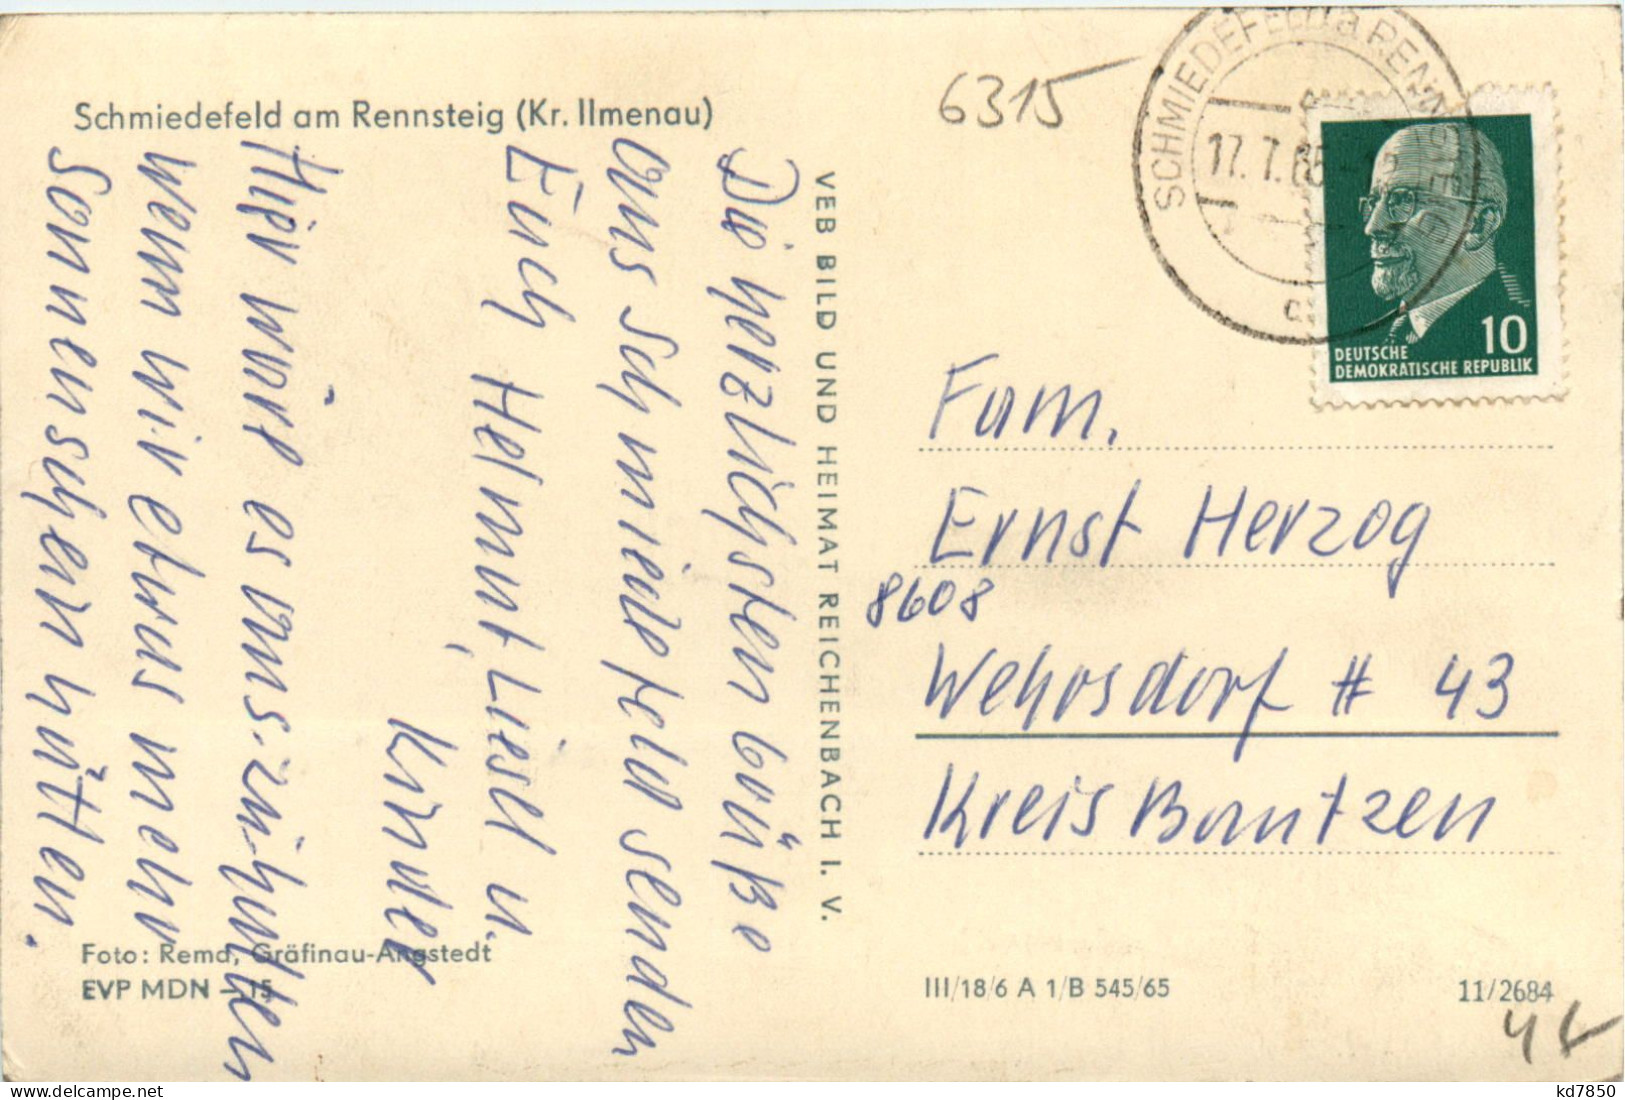 Schmiedefeld am Rennsteig (Kr. Ilmenau)
Die herzlichsten Grüße
aus Schmiedefeld senden
Euch Helmut, Liesl u.
Kinder
Hier wäre es uns zu halten
wenn wir etwas mehr
Sonnenschein hätten.
Foto: Remd, Gräfinau-Angstedt
EVP MDN –,15
VEB BILD UND HEIMAT REICHENBACH I. V.
6315
SCHMIEDEFELD a RENNSTEIG
17.7.65
DEUTSCHE
DEMOKRATISCHE REPUBLIK
10
Fam.
Ernst Herzog
8608
Wehrsdorf # 43
Kreis Bautzen
III/18/6 A 1/B 545/65
11/2684
kd7850